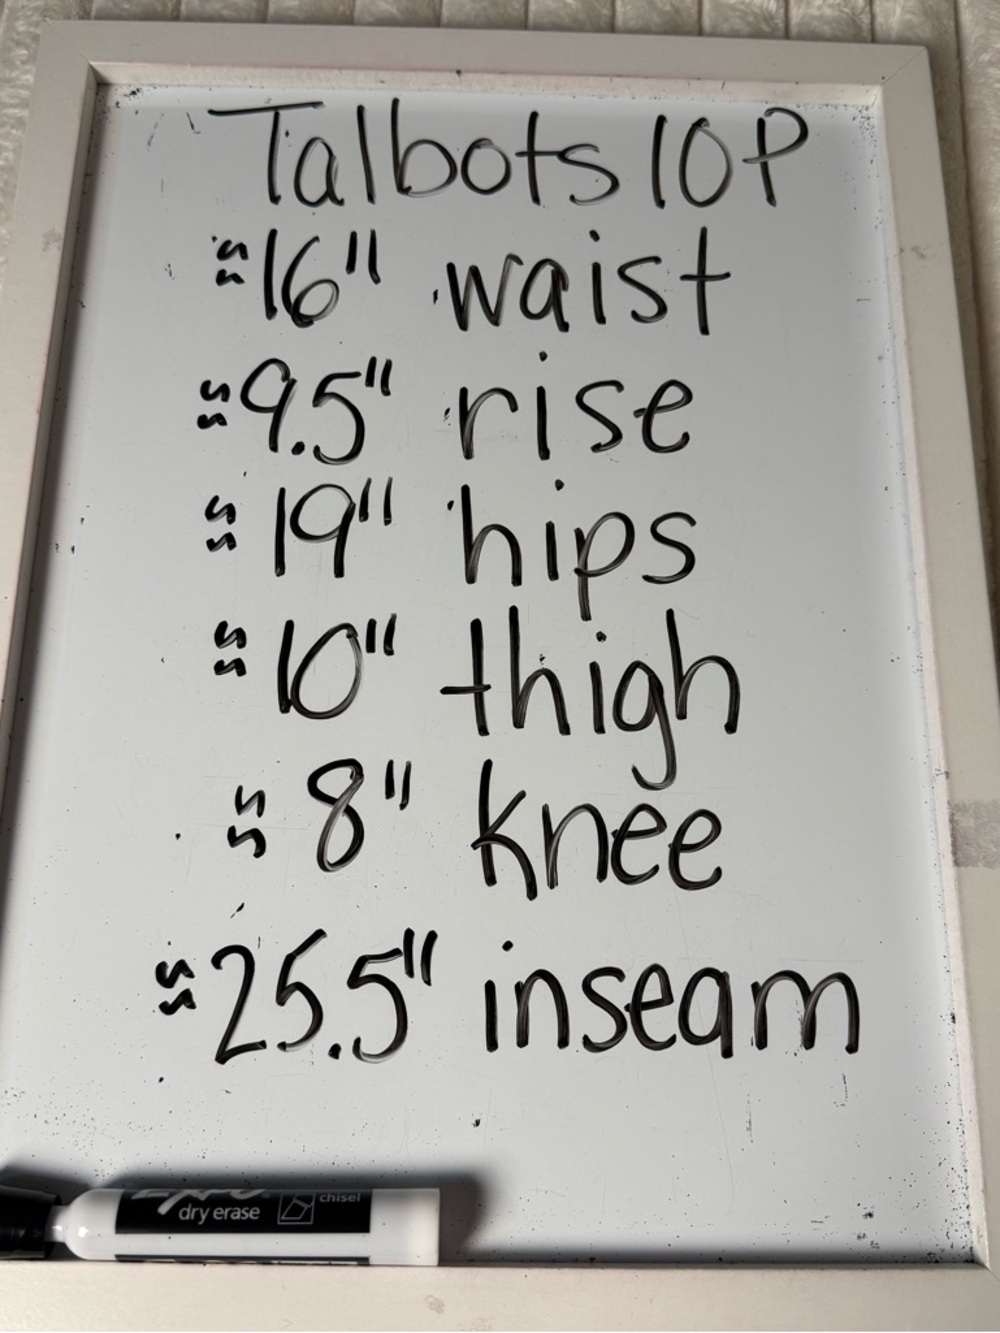 Talbots 10P
≈16" waist
≈9.5" rise
≈19" hips
≈10" thigh
≈8" knee
≈25.5" inseam
chisel
dry erase